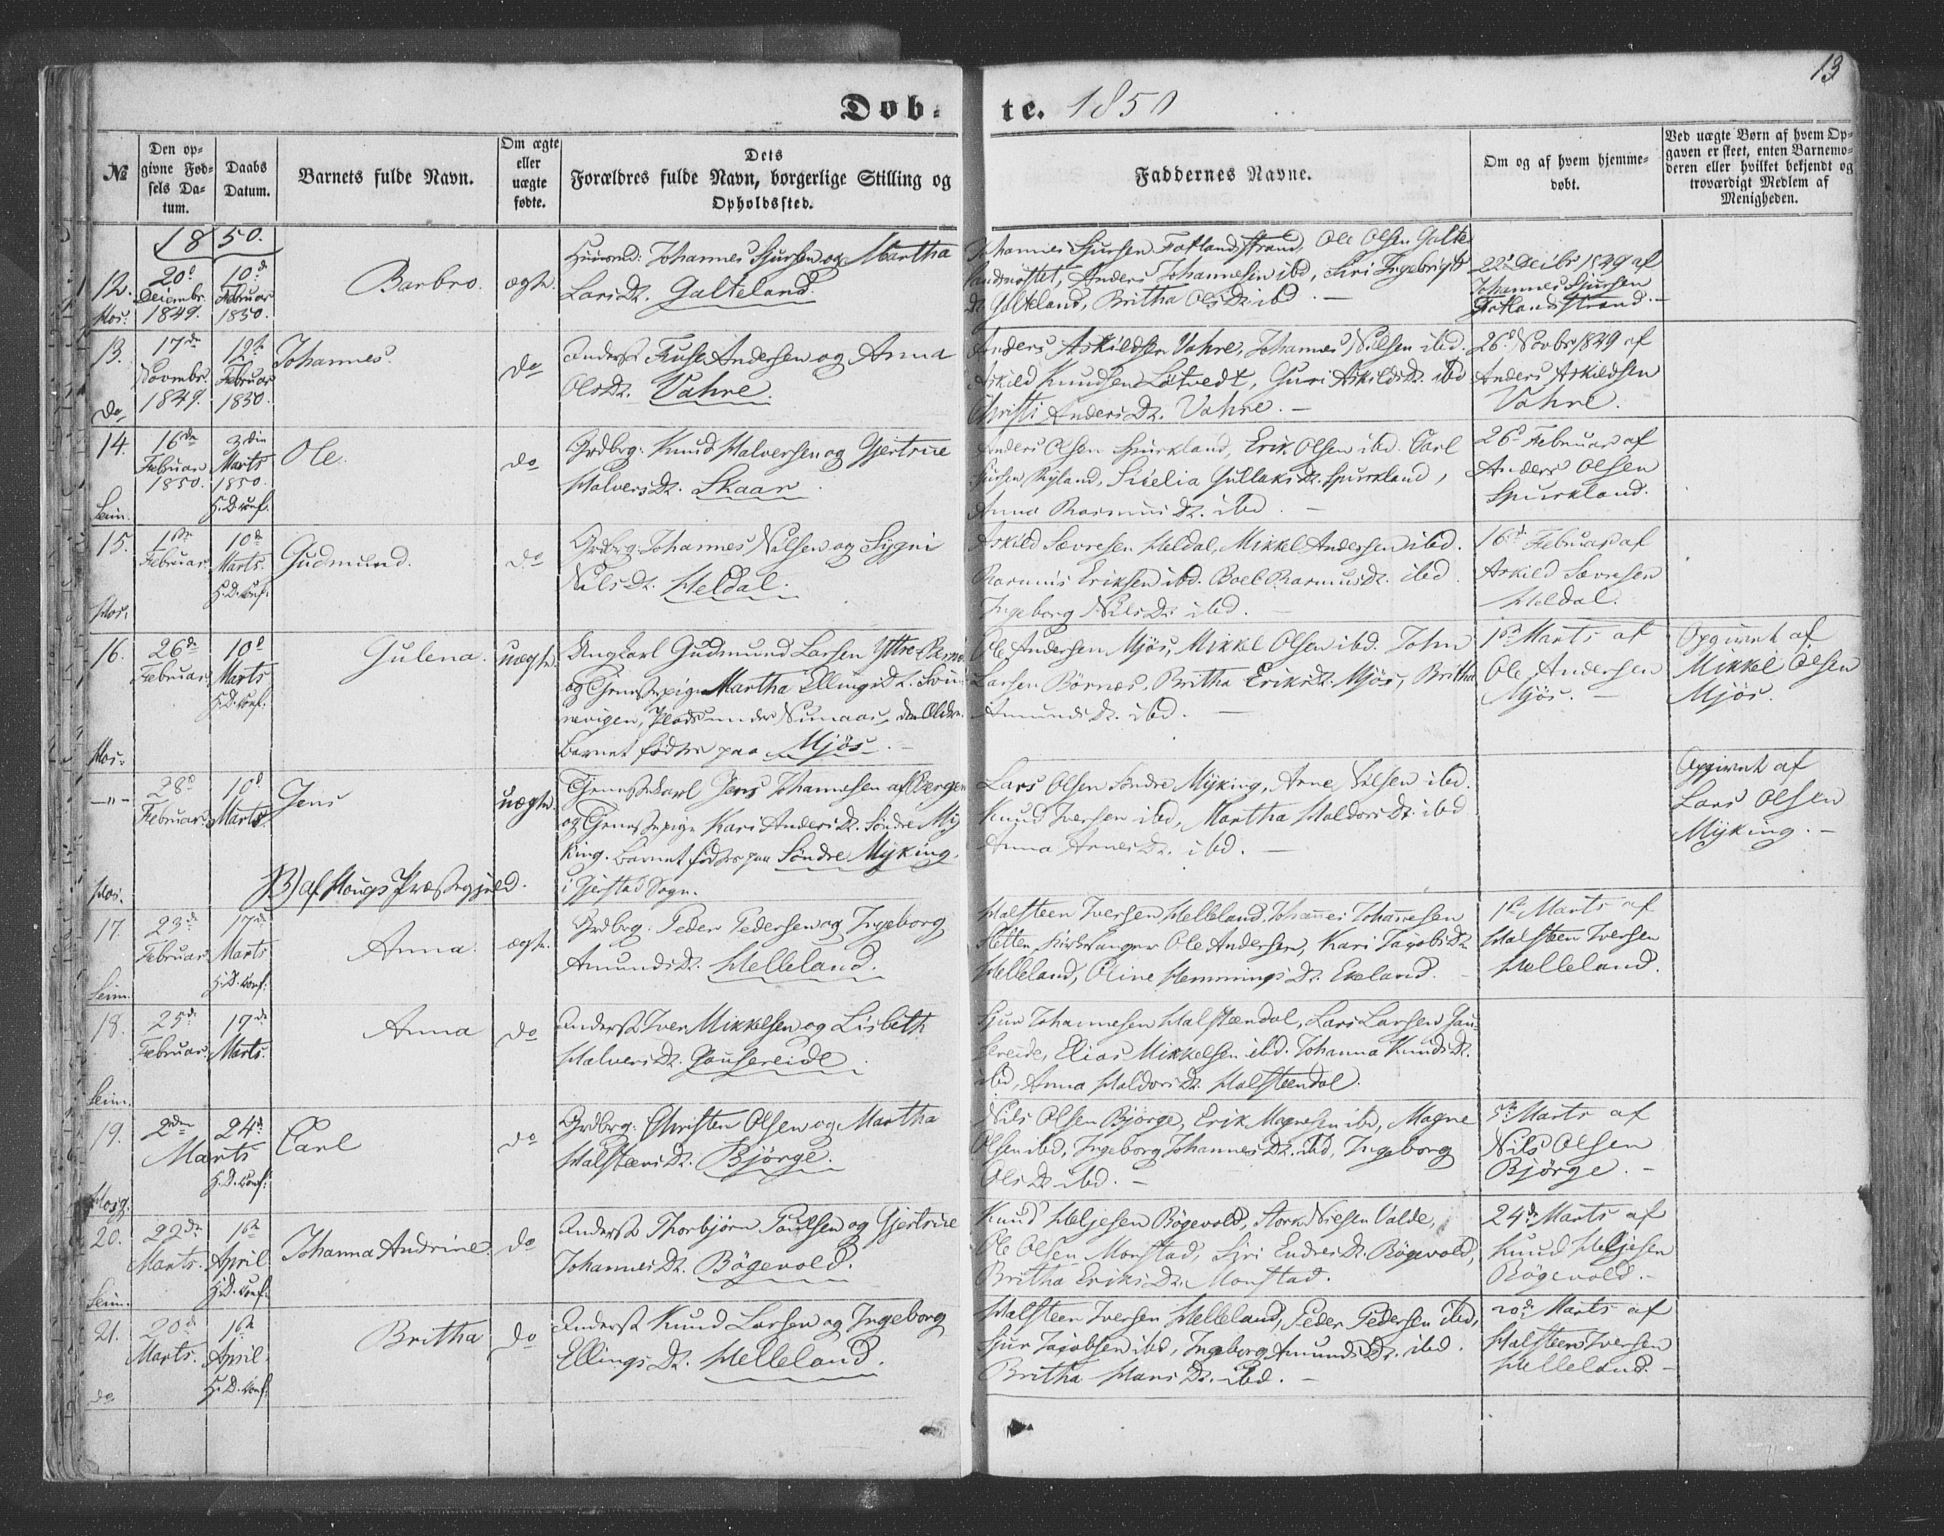 13
Døb-
te. 1850
№
Den op-
givne Fød-
sels Da-
tum.
Daabs
Datum.
Barnets fulde Navn.
Om ægte
eller
uægte
fødte.
Dets
Forældres fulde Navn, borgerlige Stilling og
Opholdssted.
Faddernes Navne.
Om og af hvem hjemme-
døbt.
Ved uægte Børn af hvem Op-
gaven er skeet, enten Barnemo-
deren eller hvilket bekjendt og
troværdigt Medlem af
Menigheden.
1850.
12.
20de
Decembr.
1849.
10de
Februar
1850.
Barbro.
ægte.
Huusmd: Johannes Sjursen og Martha
Larsdr. Galteland.
Johannes Sjursen Fotlandsstrand, Ole Olsen Galte-
landnøstet, Anders Johannesen ibd, Siri Ingebrigts
Dr. Galteland, Britha Olsdr. ibd. —
22d Decbr 1849 af
Johannes Sjursen
Fotlandsstrand. —
Hos:
13.
17de
Novembr.
1849.
12te
Februar
1850.
Johannes.
do
Inderst Anders Andersen og Anna
Olsdr. Vahre.
Anders Askildsen Vahre, Johannes Nilsen ibd.
Askild Knudsen Løtvedt, Guri Askildsdr. ibd
Christi Andersdr. Vahre. —
26d Novbr 1849 af
Anders Askildsen
Vahre.
do
14.
16de
Februar
1850.
3die
Marts
1850.
H.D. conf.
Ole.
do
Grdbrg: Knud Halversen og Gjertrue
Halversdr. Skaar.
Anders Olsen Spurkland, Erik Olsen ibd. Carl
Sjursen Ryland, Sicelia Gullaksdr. Spurkland,
Anna Rasmusdr. ibd. —
26d Februar af
Anders Olsen
Spurkland.
Seim.
15.
1ste
Februar
10de
Marts.
H.D. conf.
Gudmund.
do
Grdbrg: Johannes Nilsen og Sygni
Nilsdr. Heldal.
Askild Sævresen Heldal, Mikkel Andersen ibd.
Rasmus Eriksen ibd. Boel Rasmusdr. ibd.
Ingeborg Nilsdr. ibd. —
16d Februar af
Askild Sævresen
Heldal.
Hos:
16.
26de
Februar
10d
Marts
H.D. conf.
Gulena.
uægte.
Ungkarl Gudmund Larsen Yttre
og Tjenestepige Martha Ellingsdr.
Barnet fødtes paa Mjøs. —
Ole Andersen Mjøs, Mikkel Olsen ibd. John
Larsen Børnæs, Britha Eriksdr. Mjøs, Britha
Amundsdr. ibd. —
1ste Marts af
Ole Andersen
Mjøs. —
Opgivet af
Mikkel Olsen
Mjøs.
Hos:
—"—
28d
Februar
10d
Marts.
Jens
uægte.
Tjenestekarl Jens Johannesen af Bergen
og Tjenestepige Kari Andersdr. Søndre My-
king. Barnet fødtes paa Søndre Myking.
i Gjerstad Sogn.
Lars Olsen Søndre Myking, Arne Nilsen ibd.
Knud Iversen ibd, Martha Haldorsdr. ibd
Anna Arnesdr. ibd. —
Opgivet af
Lars Olsen
Myking. —
Hos:
B) af Hougs Præstegjeld.
17.
23de
Februar
17de
Marts
H.D. conf.
Anna.
ægte.
Grdbrg: Peder Pedersen og Ingeborg
Amundsdr. Helleland.
Halsteen Iversen Helleland, Johannes Johannesen
Sletten, Kirkesanger Ole Andersen, Kari Jagobsdr.
Helleland, Oline Hemmingsdr. Ekeland. —
1ste Marts af
Halsteen Iversen
Helleland.
Seim.
18.
25de
Februar
19de
Marts.
Anna
do
Inderst Iver Mikkelsen og Lisbeth
Halversdr. Gausereide.
Sjur Johannesen Halstendal, Lars Larsen Gau-
sereide, Elias Mikkelsen ibd. Johanna Knudsdr.
ibd, Anna Haldorsdr. Halsteendal.
Seim.
19.
2den
Marts
24d
H.D. conf.
Carl
do
Grdbrg: Christen Olsen og Martha
Halsteensdr. Bjørge.
Nils Olsen Bjørge, Erik Magnesen ibd, Magne
Olsen ibd, Ingeborg Johannesdr. ibd, Ingeborg
Olsdr. ibd. —
5te Marts af
Nils Olsen
Bjørge. —
Hosg.
20.
22de
Marts.
1ste
April
H.D. conf.
Johanna Andrine.
do
Inderst Thorbjørn Paulsen og Gjertrue
Johannesdr. Bøgevold.
Knud Heljesen Bøgevold, Stork Niesen Valde,
Ole Olsen Monstad, Siri Endresdr. Bøgevold,
Britha Eriksdr. Monstad.
24de Marts af
Knud Heljesen
Bøgevold. —
Seim.
21.
20de
Marts.
1ste
April.
H.D. conf.
Britha
do
Inderst Knud Larsen og Ingeborg
Ellingsdr. Helleland.
Halsteen Iversen Helleland, Peder Pedersen ibd,
Sjur Jagobsen ibd, Ingeborg Amundsdr. ibd.
Britha Hansdr. ibd. —
20de Marts af
Halsteen Iversen
Helleland. —
do